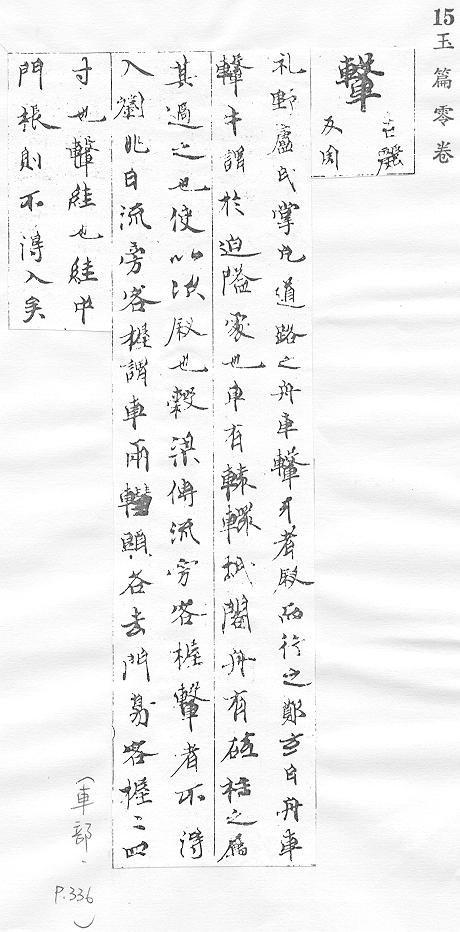 15玉篇零卷
轚
古麗
反周
礼野廬氏掌凡道路之舟車轚㸦者敘而行之鄭玄曰舟車
轚㸦謂於迫隘處也車有轅轘抵閣舟有砥柱之屬
其過之也使以次敘也穀梁傳流旁客楃轚者不得
入蘭兆曰流旁客楃謂車兩轊頭各去門旁客楃〻四
寸也轚絓也絓中
門棖則不得入矣
(車部、
P.336)